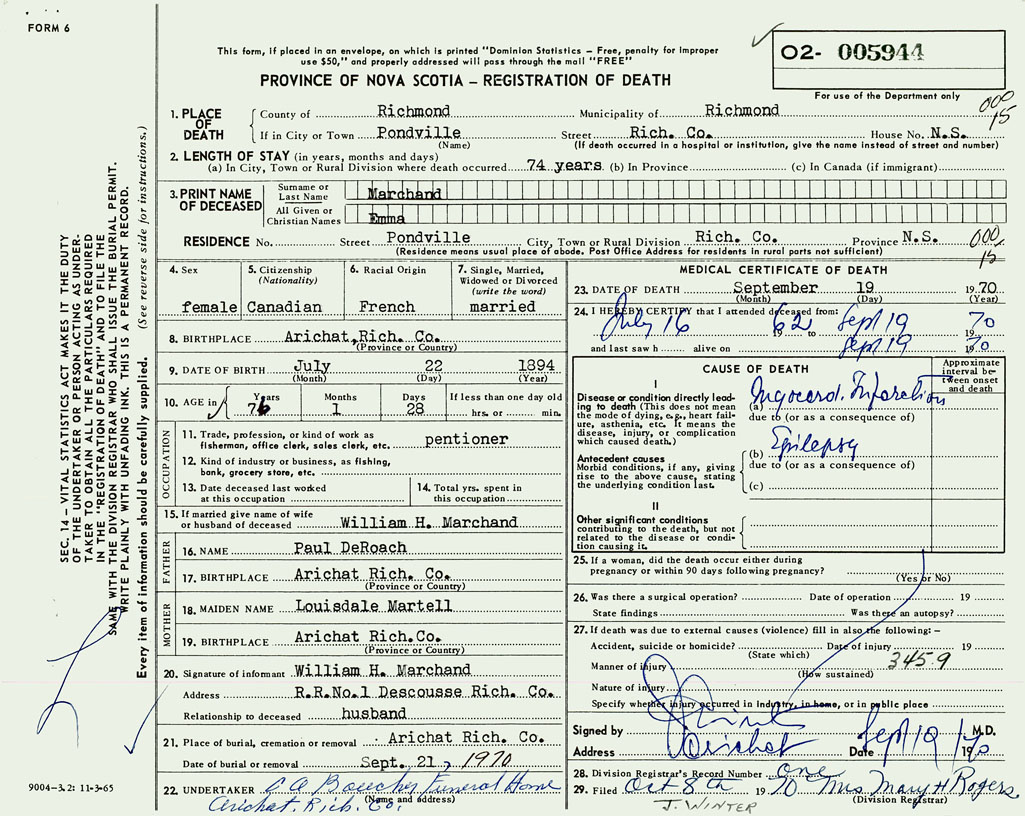 FORM 6
This form, if placed in an envelope, on which is printed "Dominion Statistics – Free, penalty for improper
use $50," and properly addressed will pass through the mail "FREE"
PROVINCE OF NOVA SCOTIA – REGISTRATION OF DEATH
02- 005944
For use of the Department only
000
15
1. PLACE OF DEATH
County of Richmond Municipality of Richmond
If in City or Town Pondville Street Rich. Co. House No. N.S.
(Name) (If death occurred in a hospital or institution, give the name instead of street and number)
2. LENGTH OF STAY (in years, months and days)
(a) In City, Town or Rural Division where death occurred 74 years (b) In Province (c) In Canada (if immigrant)
3. PRINT NAME OF DECEASED
Surname or Last Name Marchand
All Given or Christian Names Emma
RESIDENCE No. Street Pondville City, Town or Rural Division Rich. Co. Province N.S.
(Residence means usual place of abode. Post Office Address for residents in rural parts not sufficient)
000
15
4. Sex
female
5. Citizenship
(Nationality)
Canadian
6. Racial Origin
French
7. Single, Married,
Widowed or Divorced
(write the word)
married
8. BIRTHPLACE Arichat, Rich. Co.
(Province or Country)
9. DATE OF BIRTH July 22 1894
(Month) (Day) (Year)
10. AGE in
Years Months Days If less than one day old
76 1 28 hrs. or min.
OCCUPATION
11. Trade, profession, or kind of work as
fisherman, office clerk, sales clerk, etc. pentioner
12. Kind of industry or business, as fishing,
bank, grocery store, etc.
13. Date deceased last worked
at this occupation
14. Total yrs. spent in
this occupation
15. If married give name of wife
or husband of deceased William H. Marchand
FATHER
16. NAME Paul DeRoach
17. BIRTHPLACE Arichat Rich. Co.
(Province or Country)
MOTHER
18. MAIDEN NAME Louisdale Martell
19. BIRTHPLACE Arichat Rich.Co.
(Province or Country)
20. Signature of informant William H. Marchand
Address R.R.No.1 Descousse Rich. Co.
Relationship to deceased husband
21. Place of burial, cremation or removal Arichat Rich. Co.
Date of burial or removal Sept. 21, 1970
22. UNDERTAKER C A Boucher Funeral Home
(Name and address)
Arichat Rich. Co.
MEDICAL CERTIFICATE OF DEATH
23. DATE OF DEATH September 19 1970
(Month) (Day) (Year)
24. I HEREBY CERTIFY that I attended deceased from:
July 16 1962 to Sept 19 1970
and last saw h alive on Sept 19 1970
CAUSE OF DEATH
Approximate
interval be-
tween onset
and death
I
Disease or condition directly lead-
ing to death (This does not mean
the mode of dying, e.g., heart fail-
ure, asthenia, etc. It means the
disease, injury, or complication
which caused death.)
(a) Myocard. Infarction
due to (or as a consequence of)
Antecedent causes
Morbid conditions, if any, giving
rise to the above cause, stating
the underlying condition last.
(b) Epilepsy
due to (or as a consequence of)
(c)
II
Other significant conditions
contributing to the death, but not
related to the disease or condi-
tion causing it.
25. If a woman, did the death occur either during
pregnancy or within 90 days following pregnancy?
(Yes or No)
26. Was there a surgical operation? Date of operation 19
State findings Was there an autopsy?
27. If death was due to external causes (violence) fill in also the following: –
Accident, suicide or homicide? Date of injury 19
(State which)
Manner of injury 345.9
(How sustained)
Nature of injury
Specify whether injury occurred in Industry, in home, or in public place
Signed by M.D.
Address Arichat Date Sept 19 1970
28. Division Registrar's Record Number one
29. Filed Oct 8th 1970 Mrs Mary H Rogers
(Division Registrar)
J. WINTER
SEC. 14 – VITAL STATISTICS ACT MAKES IT THE DUTY
OF THE UNDERTAKER OR PERSON ACTING AS UNDER-
TAKER TO OBTAIN ALL THE PARTICULARS REQUIRED
IN THE "REGISTRATION OF DEATH" AND TO FILE THE
SAME WITH THE DIVISION REGISTRAR WHO SHALL ISSUE THE BURIAL PERMIT.
WRITE PLAINLY WITH UNFADING INK. THIS IS A PERMANENT RECORD.
Every item of information should be carefully supplied. (See reverse side for instructions.)
9004-3.2: 11-3-65